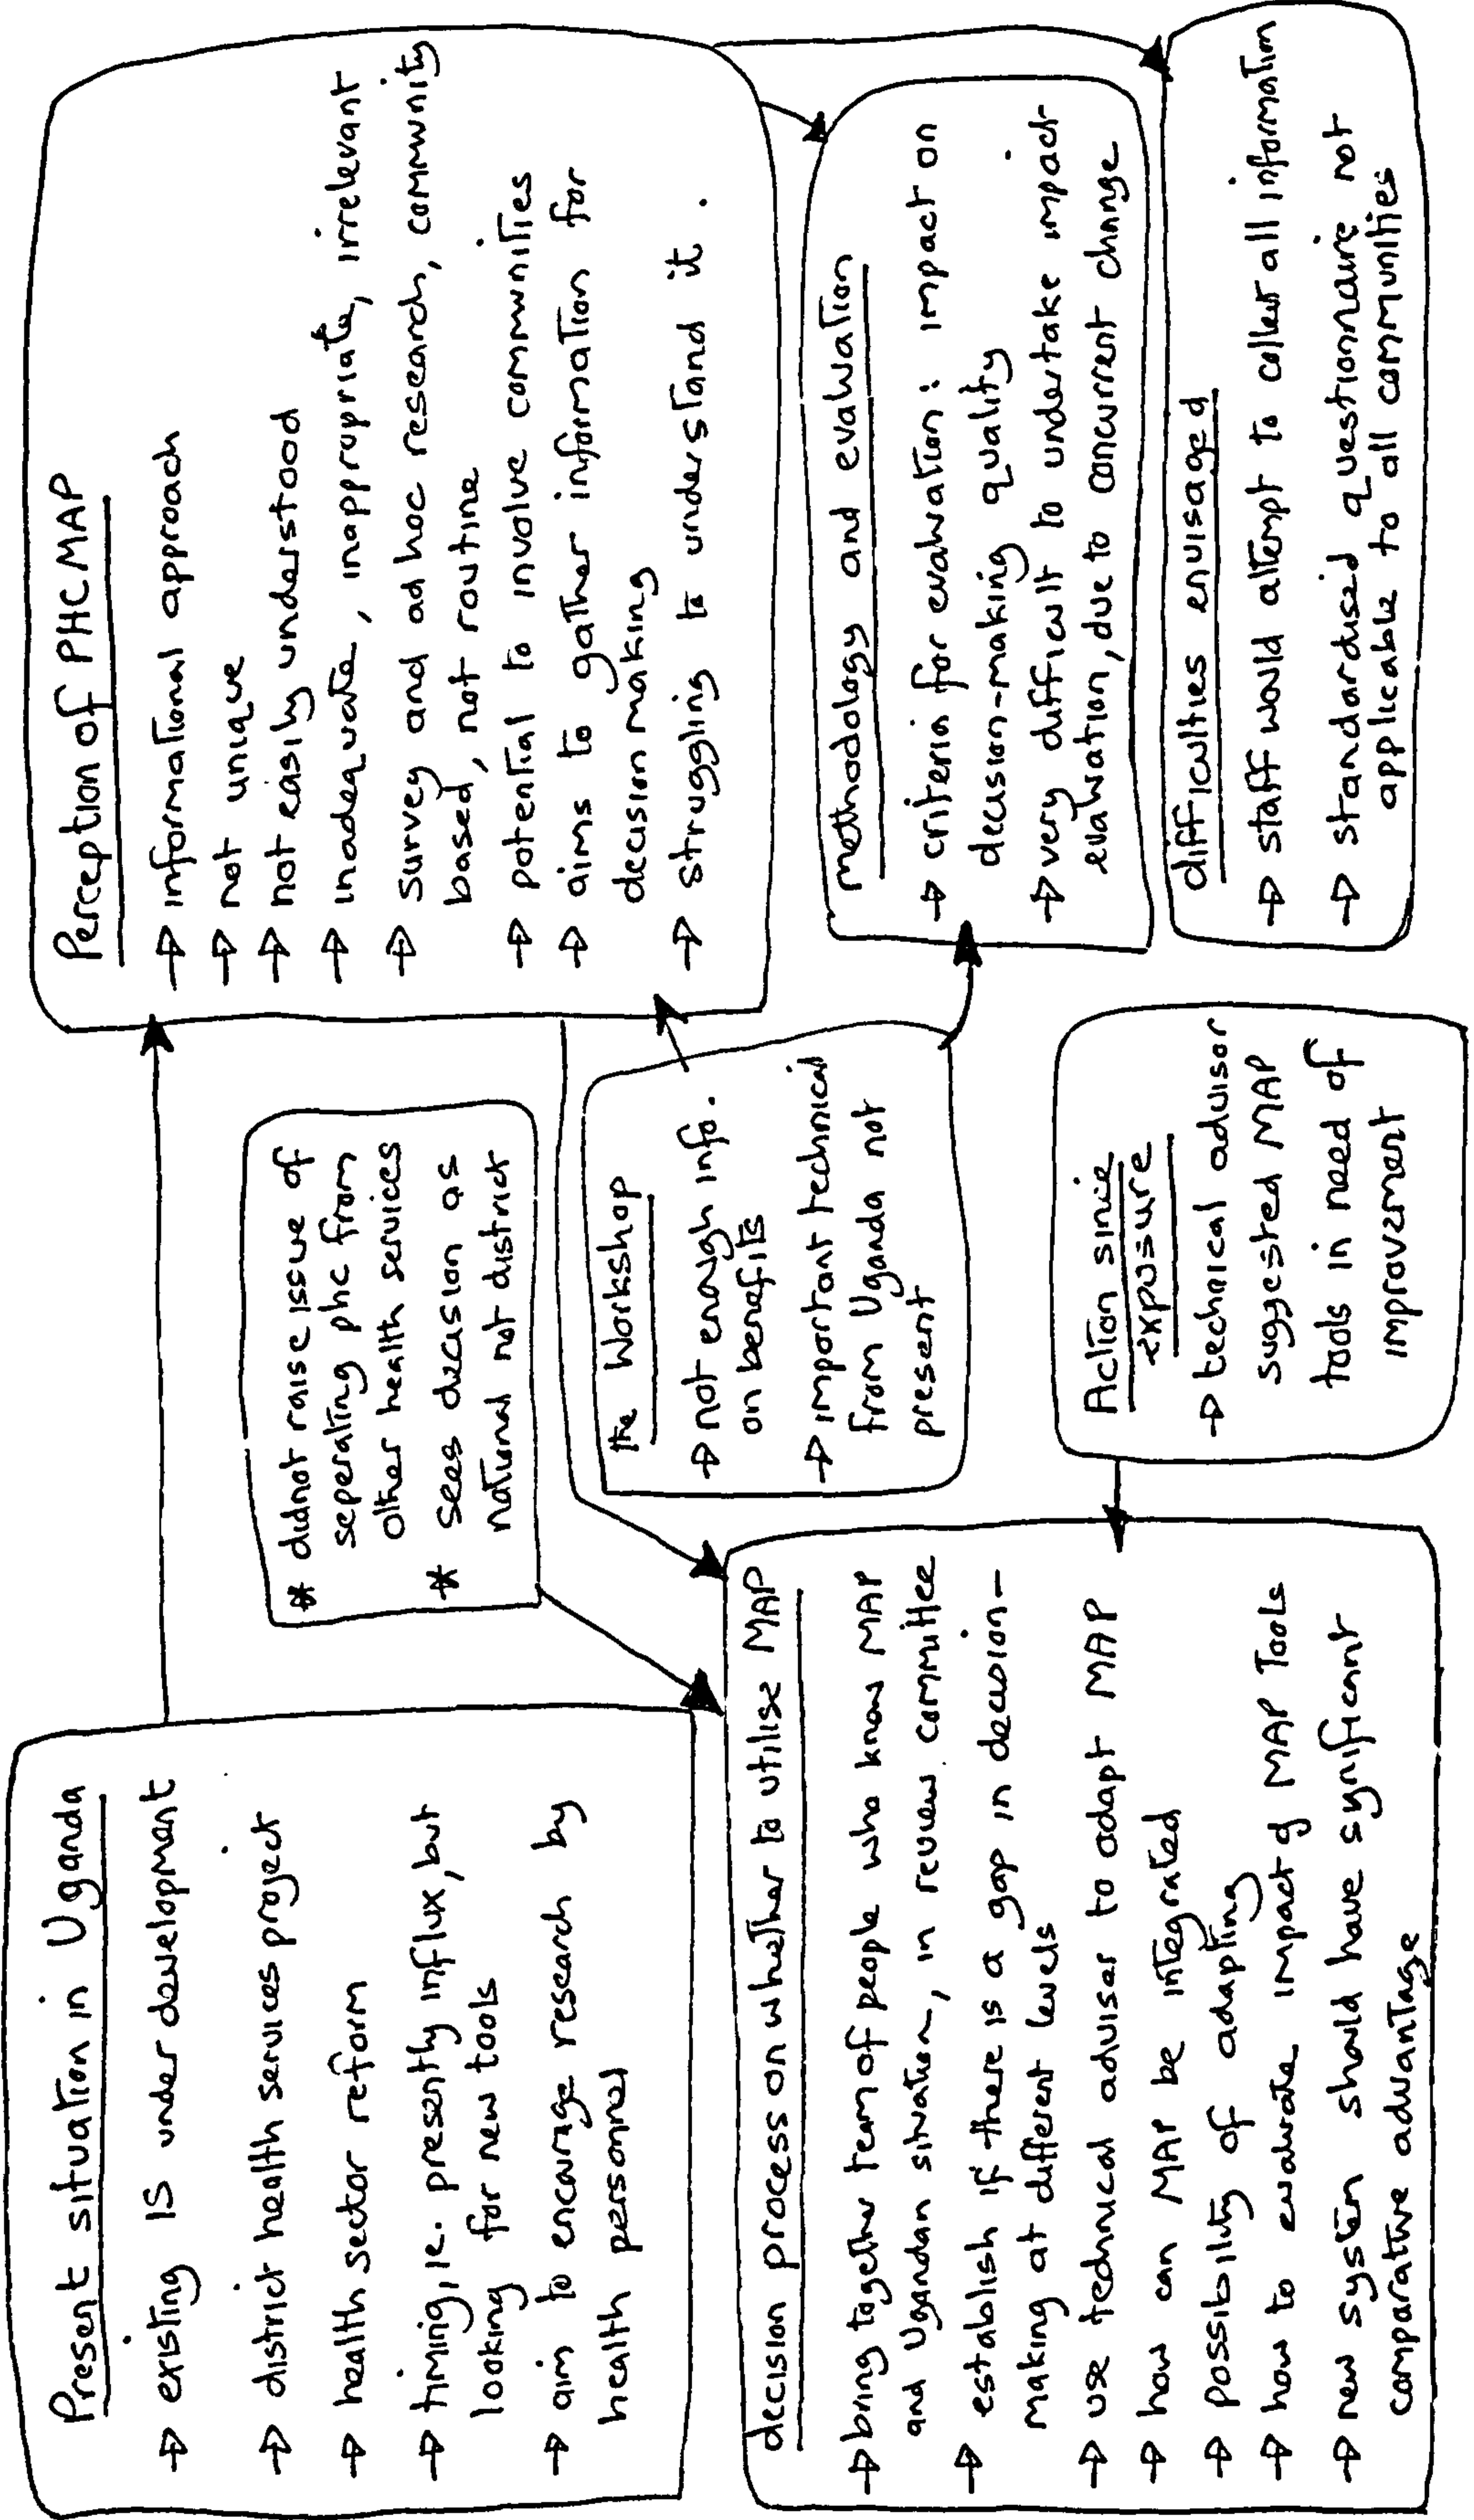 Present situation in Uganda
→ existing IS under development
→ district health services project
→ health sector reform
→ timing, ie. presently influx, but
looking for new tools
→ aim to encourage research by
health personnel
* did not raise issue of
seperating phc from
other health services
* sees decision as
national not district
Perception of PHCMAP
→ informational approach
→ not unique
→ not easily understood
→ inadequate, inappropriate, irrelevant
→ survey and ad hoc research, community
based, not routine
→ potential to involve communities
→ aims to gather information for
decision making
→ struggling to understand it.
decision process on whether to utilise MAP
→ bring together team of people who know MAP
and Ugandan situation, in review committee
→ establish if there is a gap in decision-
making at different levels
→ use technical adviser to adapt MAP
→ how can MAP be integrated
→ possibility of adapting
→ how to evaluate impact of MAP Tools
→ new system should have significant
comparative advantage
the Workshop
→ not enough info.
on benefits
→ important technical
from Uganda not
present
Action since
exposure
→ technical advisor
suggested MAP
tools in need of
improvement
methodology and evaluation
→ criteria for evaluation: impact on
decision-making quality
→ very difficult to undertake impact
evaluation, due to concurrent change
difficulties envisaged
→ staff would attempt to collect all information
→ standardised questionnaire not
applicable to all communities